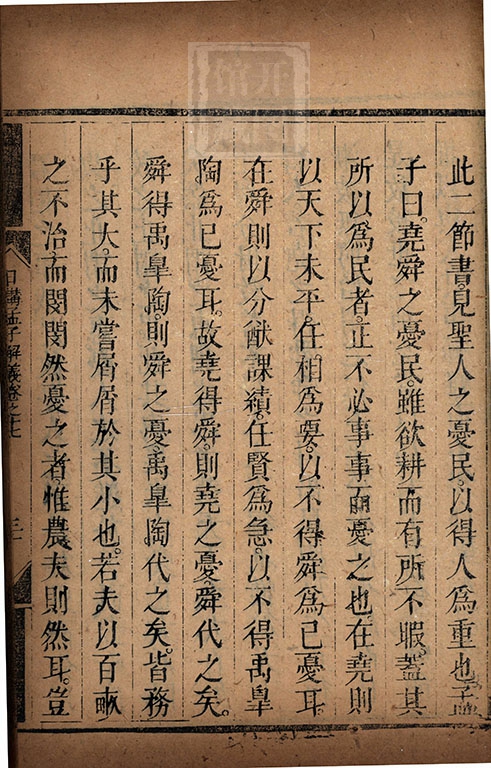 此二節書見聖人之憂民以得人為重也孟
子曰堯舜之憂民雖欲耕而有所不暇蓋其
所以為民者正不必事事而憂之也在堯則
以天下未平任相為要以不得舜為已憂耳
在舜則以分猷課績任賢為急以不得禹臯
陶為已憂耳故堯得舜則堯之憂舜代之矣
舜得禹臯陶則舜之憂禹臯陶代之矣皆務
乎其大而未嘗屑屑於其小也若夫以百畝
之不治而閔閔然憂之者惟農夫則然耳豈
日講孟子解義卷之十七 三